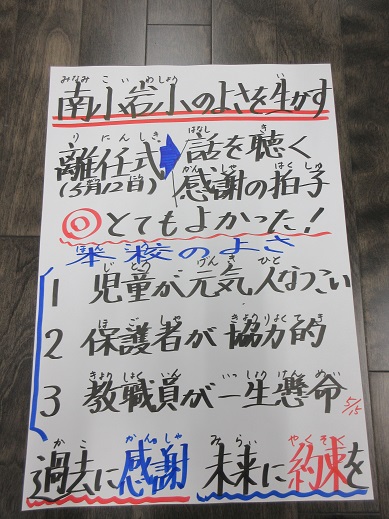 南小岩小のよさを生かす
離任式 話を聴く
(5月12日) 感謝の拍子
◎とてもよかった!
本校のよさ
1 児童が元気人なつこい
2 保護者が協力的
3 教職員が一生懸命 5/15
過去に感謝 未来に約束を